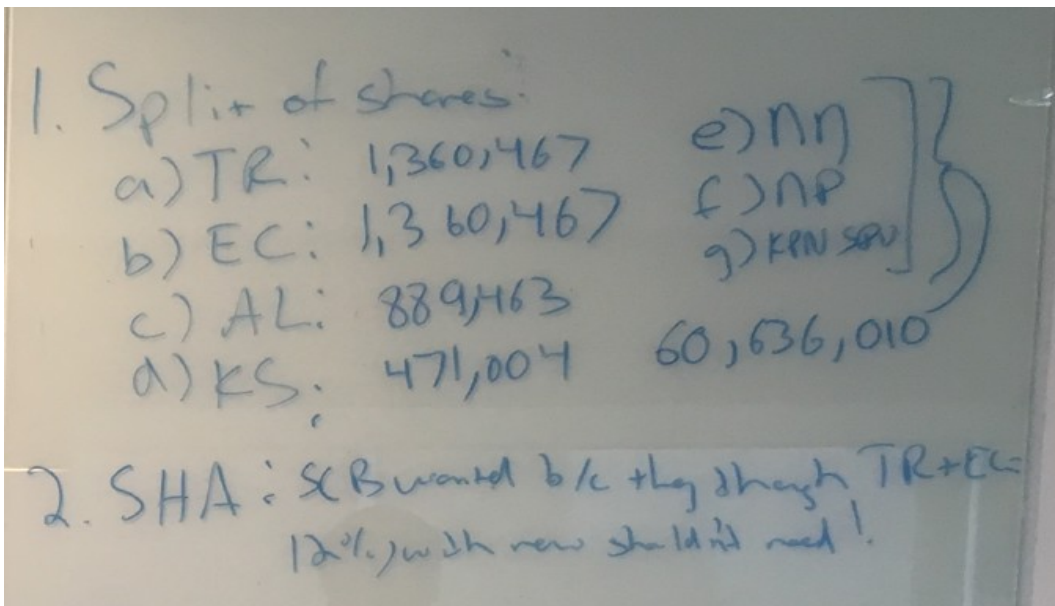 1. Split of shares:
a) TR: 1,360,467
b) EC: 1,360,467
c) AL: 889,463
d) KS: 471,004
e) nn
f) np
g) KPN SPV
60,636,010
2. SHA: SCB wanted b/c they though TR+EC=
12%, with new shouldn't need!